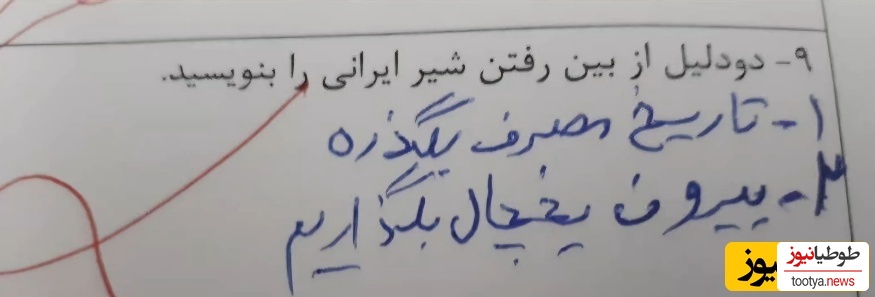 ۹- دودلیل از بین رفتن شیر ایرانی را بنویسید.
۱- تاریخ مصرف بگذره
۲- بیرون یخچال بگذاریم
طوطیانیوز
یوز
tootya.news